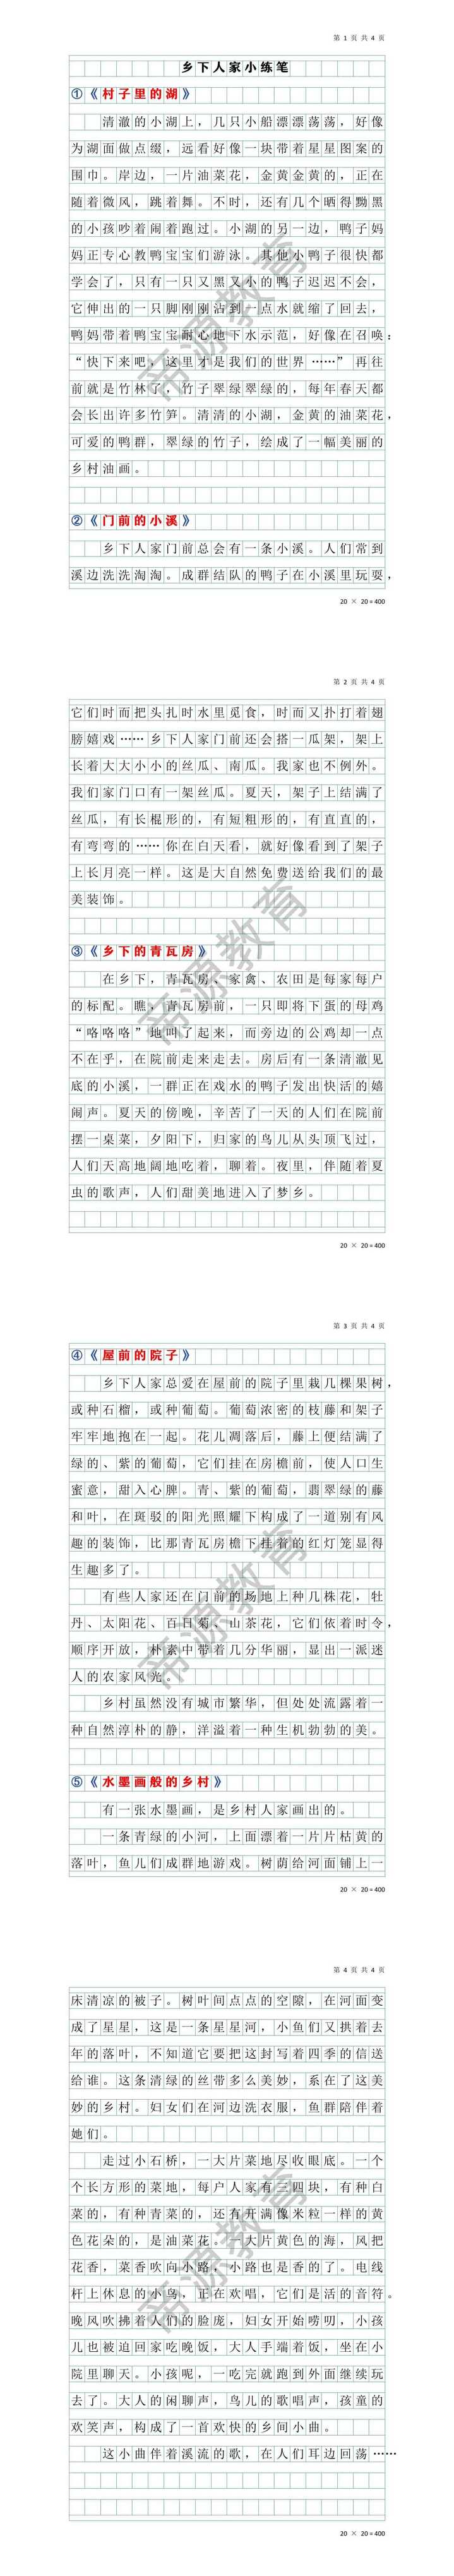 第 1 页 共 4 页
乡下人家小练笔
①《村子里的湖》
清澈的小湖上，几只小船漂漂荡荡，好像
为湖面做点缀，远看好像一块带着星星图案的
围巾。岸边，一片油菜花，金黄金黄的，正在
随着微风，跳着舞。不时，还有几个晒得黝黑
的小孩吵着闹着跑过。小湖的另一边，鸭子妈
妈正专心教鸭宝宝们游泳。其他小鸭子很快都
学会了，只有一只又黑又小的鸭子迟迟不会，
它伸出的一只脚刚刚沾到一点水就缩了回去，
鸭妈带着鸭宝宝耐心地下水示范，好像在召唤：
“快下来吧，这里才是我们的世界……”再往
前就是竹林了，竹子翠绿翠绿的，每年春天都
会长出许多竹笋。清清的小湖，金黄的油菜花，
可爱的鸭群，翠绿的竹子，绘成了一幅美丽的
乡村油画。
②《门前的小溪》
乡下人家门前总会有一条小溪。人们常到
溪边洗洗淘淘。成群结队的鸭子在小溪里玩耍，
20 × 20＝400
帝源教育
第 2 页 共 4 页
它们时而把头扎时水里觅食，时而又扑打着翅
膀嬉戏……乡下人家门前还会搭一瓜架，架上
长着大大小小的丝瓜、南瓜。我家也不例外。
我们家门口有一架丝瓜。夏天，架子上结满了
丝瓜，有长棍形的，有短粗形的，有直直的，
有弯弯的……你在白天看，就好像看到了架子
上长月亮一样。这是大自然免费送给我们的最
美装饰。
③《乡下的青瓦房》
在乡下，青瓦房、家禽、农田是每家每户
的标配。瞧，青瓦房前，一只即将下蛋的母鸡
“咯咯咯”地叫了起来，而旁边的公鸡却一点
不在乎，在院前走来走去。房后有一条清澈见
底的小溪，一群正在戏水的鸭子发出快活的嬉
闹声。夏天的傍晚，辛苦了一天的人们在院前
摆一桌菜，夕阳下，归家的鸟儿从头顶飞过，
人们天高地阔地吃着，聊着。夜里，伴随着夏
虫的歌声，人们甜美地进入了梦乡。
20 × 20＝400
帝源教育
第 3 页 共 4 页
④《屋前的院子》
乡下人家总爱在屋前的院子里栽几棵果树，
或种石榴，或种葡萄。葡萄浓密的枝藤和架子
牢牢地抱在一起。花儿凋落后，藤上便结满了
绿的、紫的葡萄，它们挂在房檐前，使人口生
蜜意，甜入心脾。青、紫的葡萄，翡翠绿的藤
和叶，在斑驳的阳光照耀下构成了一道别有风
趣的装饰，比那青瓦房檐下挂着的红灯笼显得
生趣多了。
有些人家还在门前的场地上种几株花，牡
丹、太阳花、百日菊、山茶花，它们依着时令，
顺序开放，朴素中带着几分华丽，显出一派迷
人的农家风光。
乡村虽然没有城市繁华，但处处流露着一
种自然淳朴的静，洋溢着一种生机勃勃的美。
⑤《水墨画般的乡村》
有一张水墨画，是乡村人家画出的。
一条青绿的小河，上面漂着一片片枯黄的
落叶，鱼儿们成群地游戏。树荫给河面铺上一
20 × 20＝400
帝源教育
第 4 页 共 4 页
床清凉的被子。树叶间点点的空隙，在河面变
成了星星，这是一条星星河，小鱼们又拱着去
年的落叶，不知道它要把这封写着四季的信送
给谁。这条清绿的丝带多么美妙，系在了这美
妙的乡村。妇女们在河边洗衣服，鱼群陪伴着
她们。
走过小石桥，一大片菜地尽收眼底。一个
个长方形的菜地，每户人家有三四块，有种白
菜的，有种青菜的，还有开满像米粒一样的黄
色花朵的，是油菜花。一大片黄色的海，风把
花香，菜香吹向小路，小路也是香的了。电线
杆上休息的小鸟，正在欢唱，它们是活的音符。
晚风吹拂着人们的脸庞，妇女开始唠叨，小孩
儿也被迫回家吃晚饭，大人手端着饭，坐在小
院里聊天。小孩呢，一吃完就跑到外面继续玩
去了。大人的闲聊声，鸟儿的歌唱声，孩童的
欢笑声，构成了一首欢快的乡间小曲。
这小曲伴着溪流的歌，在人们耳边回荡……
20 × 20＝400
帝源教育